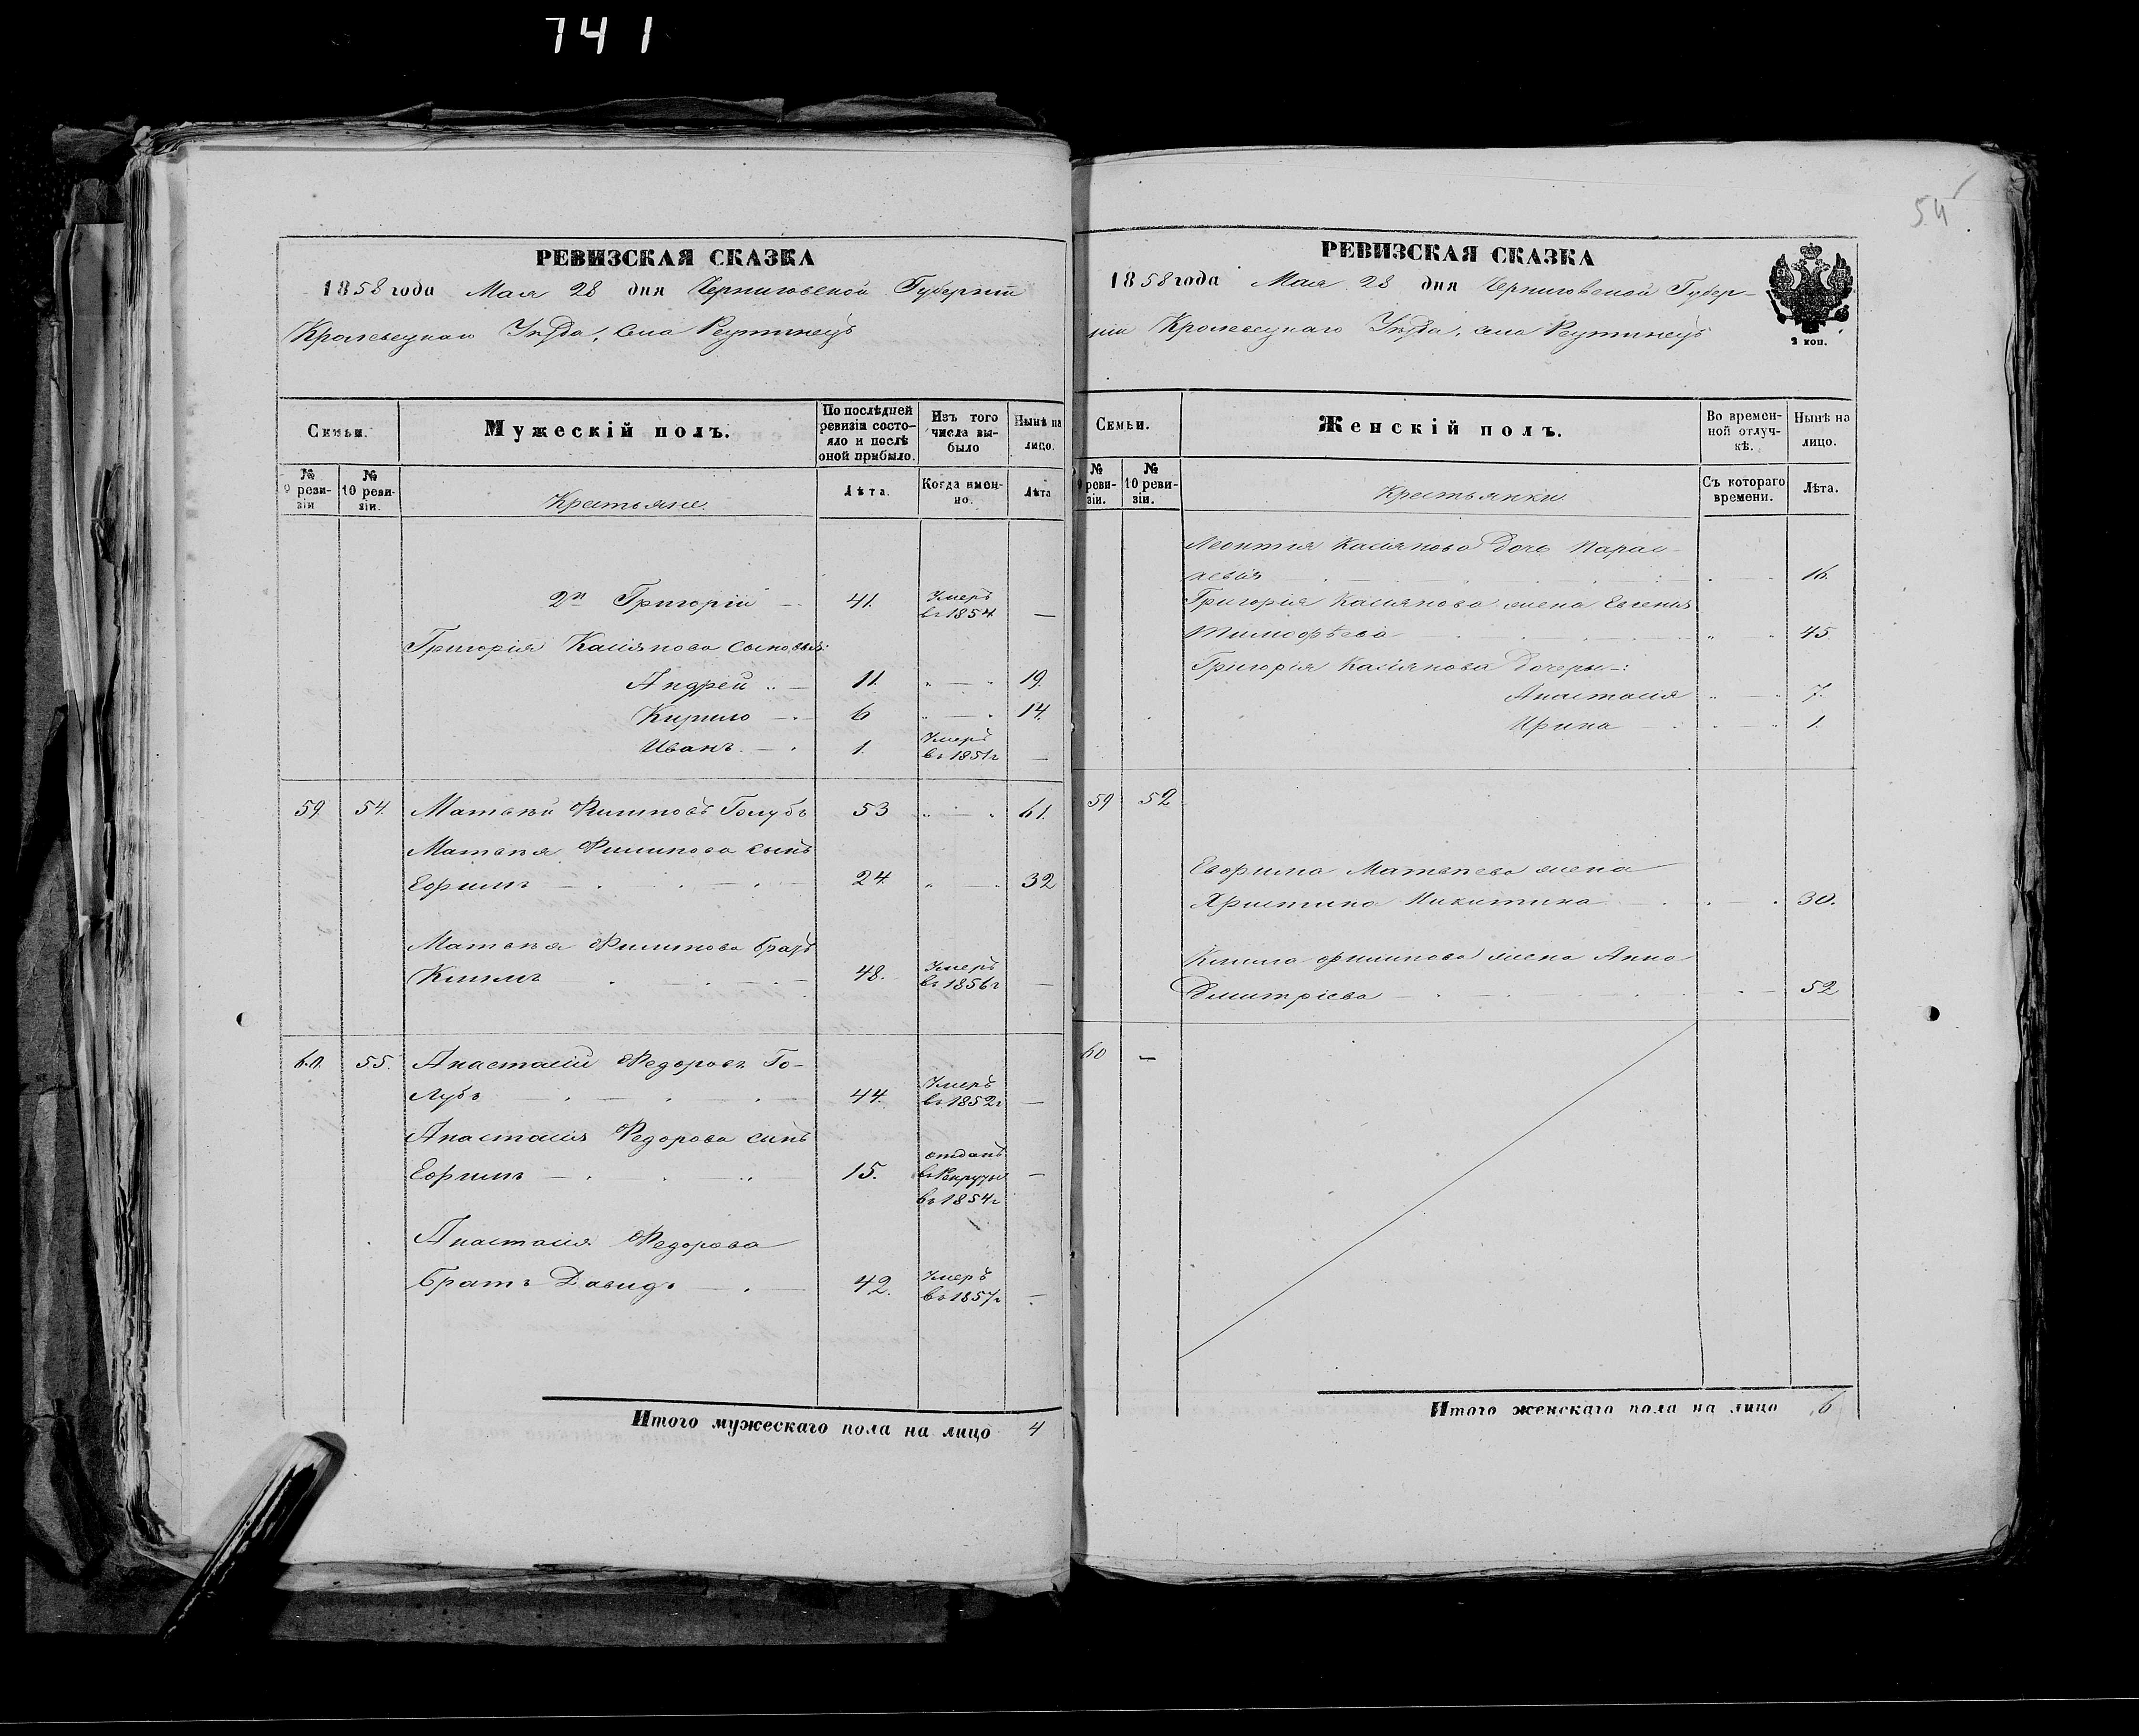 741
54
РЕВИЗСКАЯ СКАЗКА
1858 года Мая 28 дня Черниговской Губерніи
Кролевецкаго Уѣзда, села Реутинецъ
Семьи.
Мужескій полъ.
По послѣдней ревизіи состояло и послѣ оной прибыло.
Изъ того числа выбыло
Нынѣ на лицо.
№ 9 ревизіи
№ 10 ревизіи.
Крестьяне.
Лѣта.
Когда именно.
Лѣта
2й Григорій — 41. Умеръ въ 1854 —
Григорія Касіянова сыновья:
Андрей " — 11. " — " 19.
Кирило — 6 " — " 14.
Иванъ — 1. Умеръ въ 1851г —
59. 54. Матвѣй Филиповъ Голубъ 53 " — " 61.
Матвѣя Филипова сынъ
Ефримъ — 24. " — " 32
Матвѣя Филипова братъ
Климъ — 48. Умеръ въ 1856г —
60. 55. Анастасій Федоровъ Го-
лубъ — 44. Умеръ въ 1852г —
Анастасія Федорова синъ
Ефримъ — 15. отданъ въ Рекруты въ 1854г —
Анастасія Федорова
братъ Давидъ — 42. Умеръ въ 1857г —
Итого мужескаго пола на лицо 4
РЕВИЗСКАЯ СКАЗКА
1858 года Мая 28 дня Черниговской Губер-
ніи Кролевецкаго Уѣзда, села Реутинецъ
2 коп.
Семьи.
Женскій полъ.
Во временной отлучкѣ.
Нынѣ на лицо.
№ ревизіи.
№ 10 ревизіи.
Крестьянки
Съ котораго времени.
Лѣта.
Леонтія Касіянова дочь Парас-
кевія — 16.
Григорія Касіянова жена Евгенія
Тимофѣева — " " 45.
Григорія Касіянова дочеры:
Анастасія " — " 7.
Ирина — " — " 1.
59 52
Евфрима Матвѣева жена
Христина Никитина " — " 30.
Клима Филипова жена Анна
Дмитріева — 52
60 —
Итого женскаго пола на лицо 6